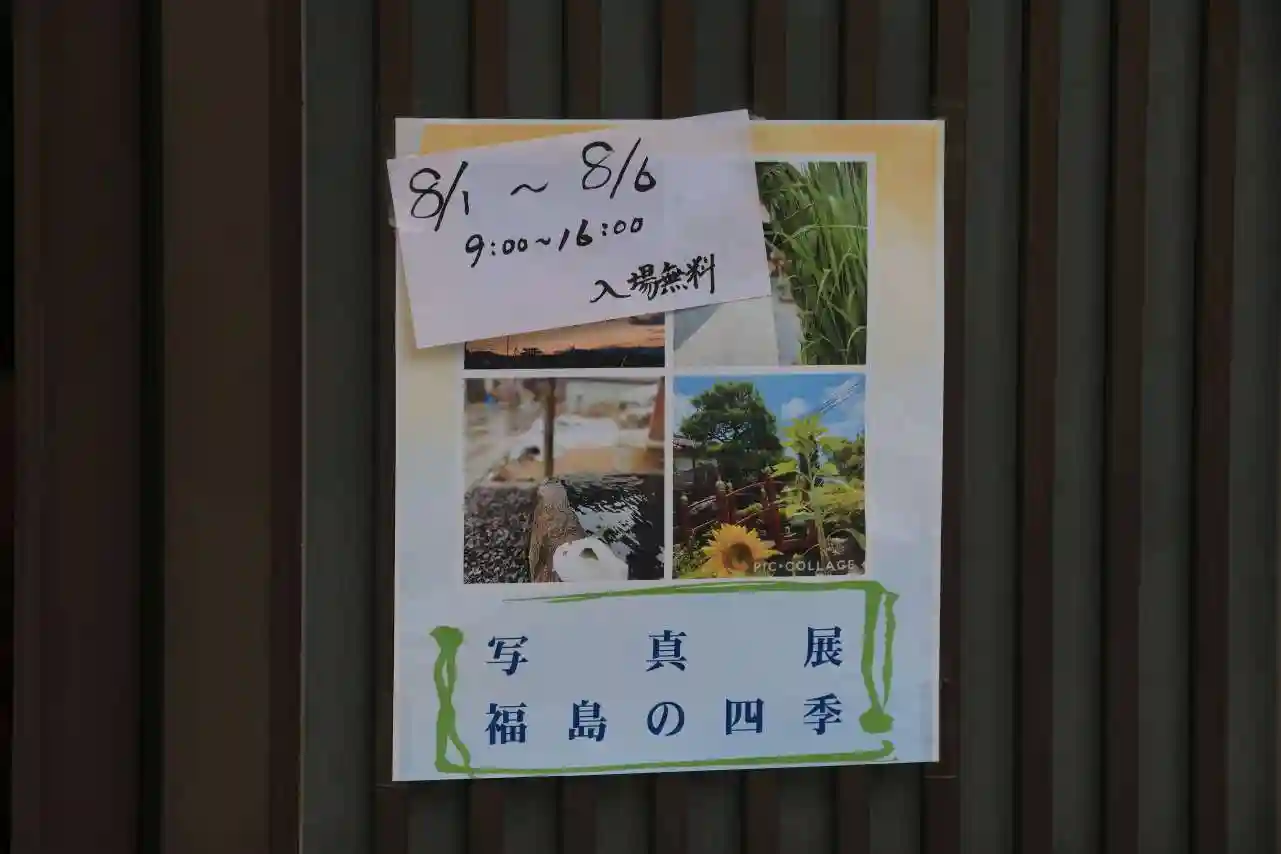 8/1 ~ 8/6
9:00~16:00
入場無料
PIC•COLLAGE
写真展
福島の四季